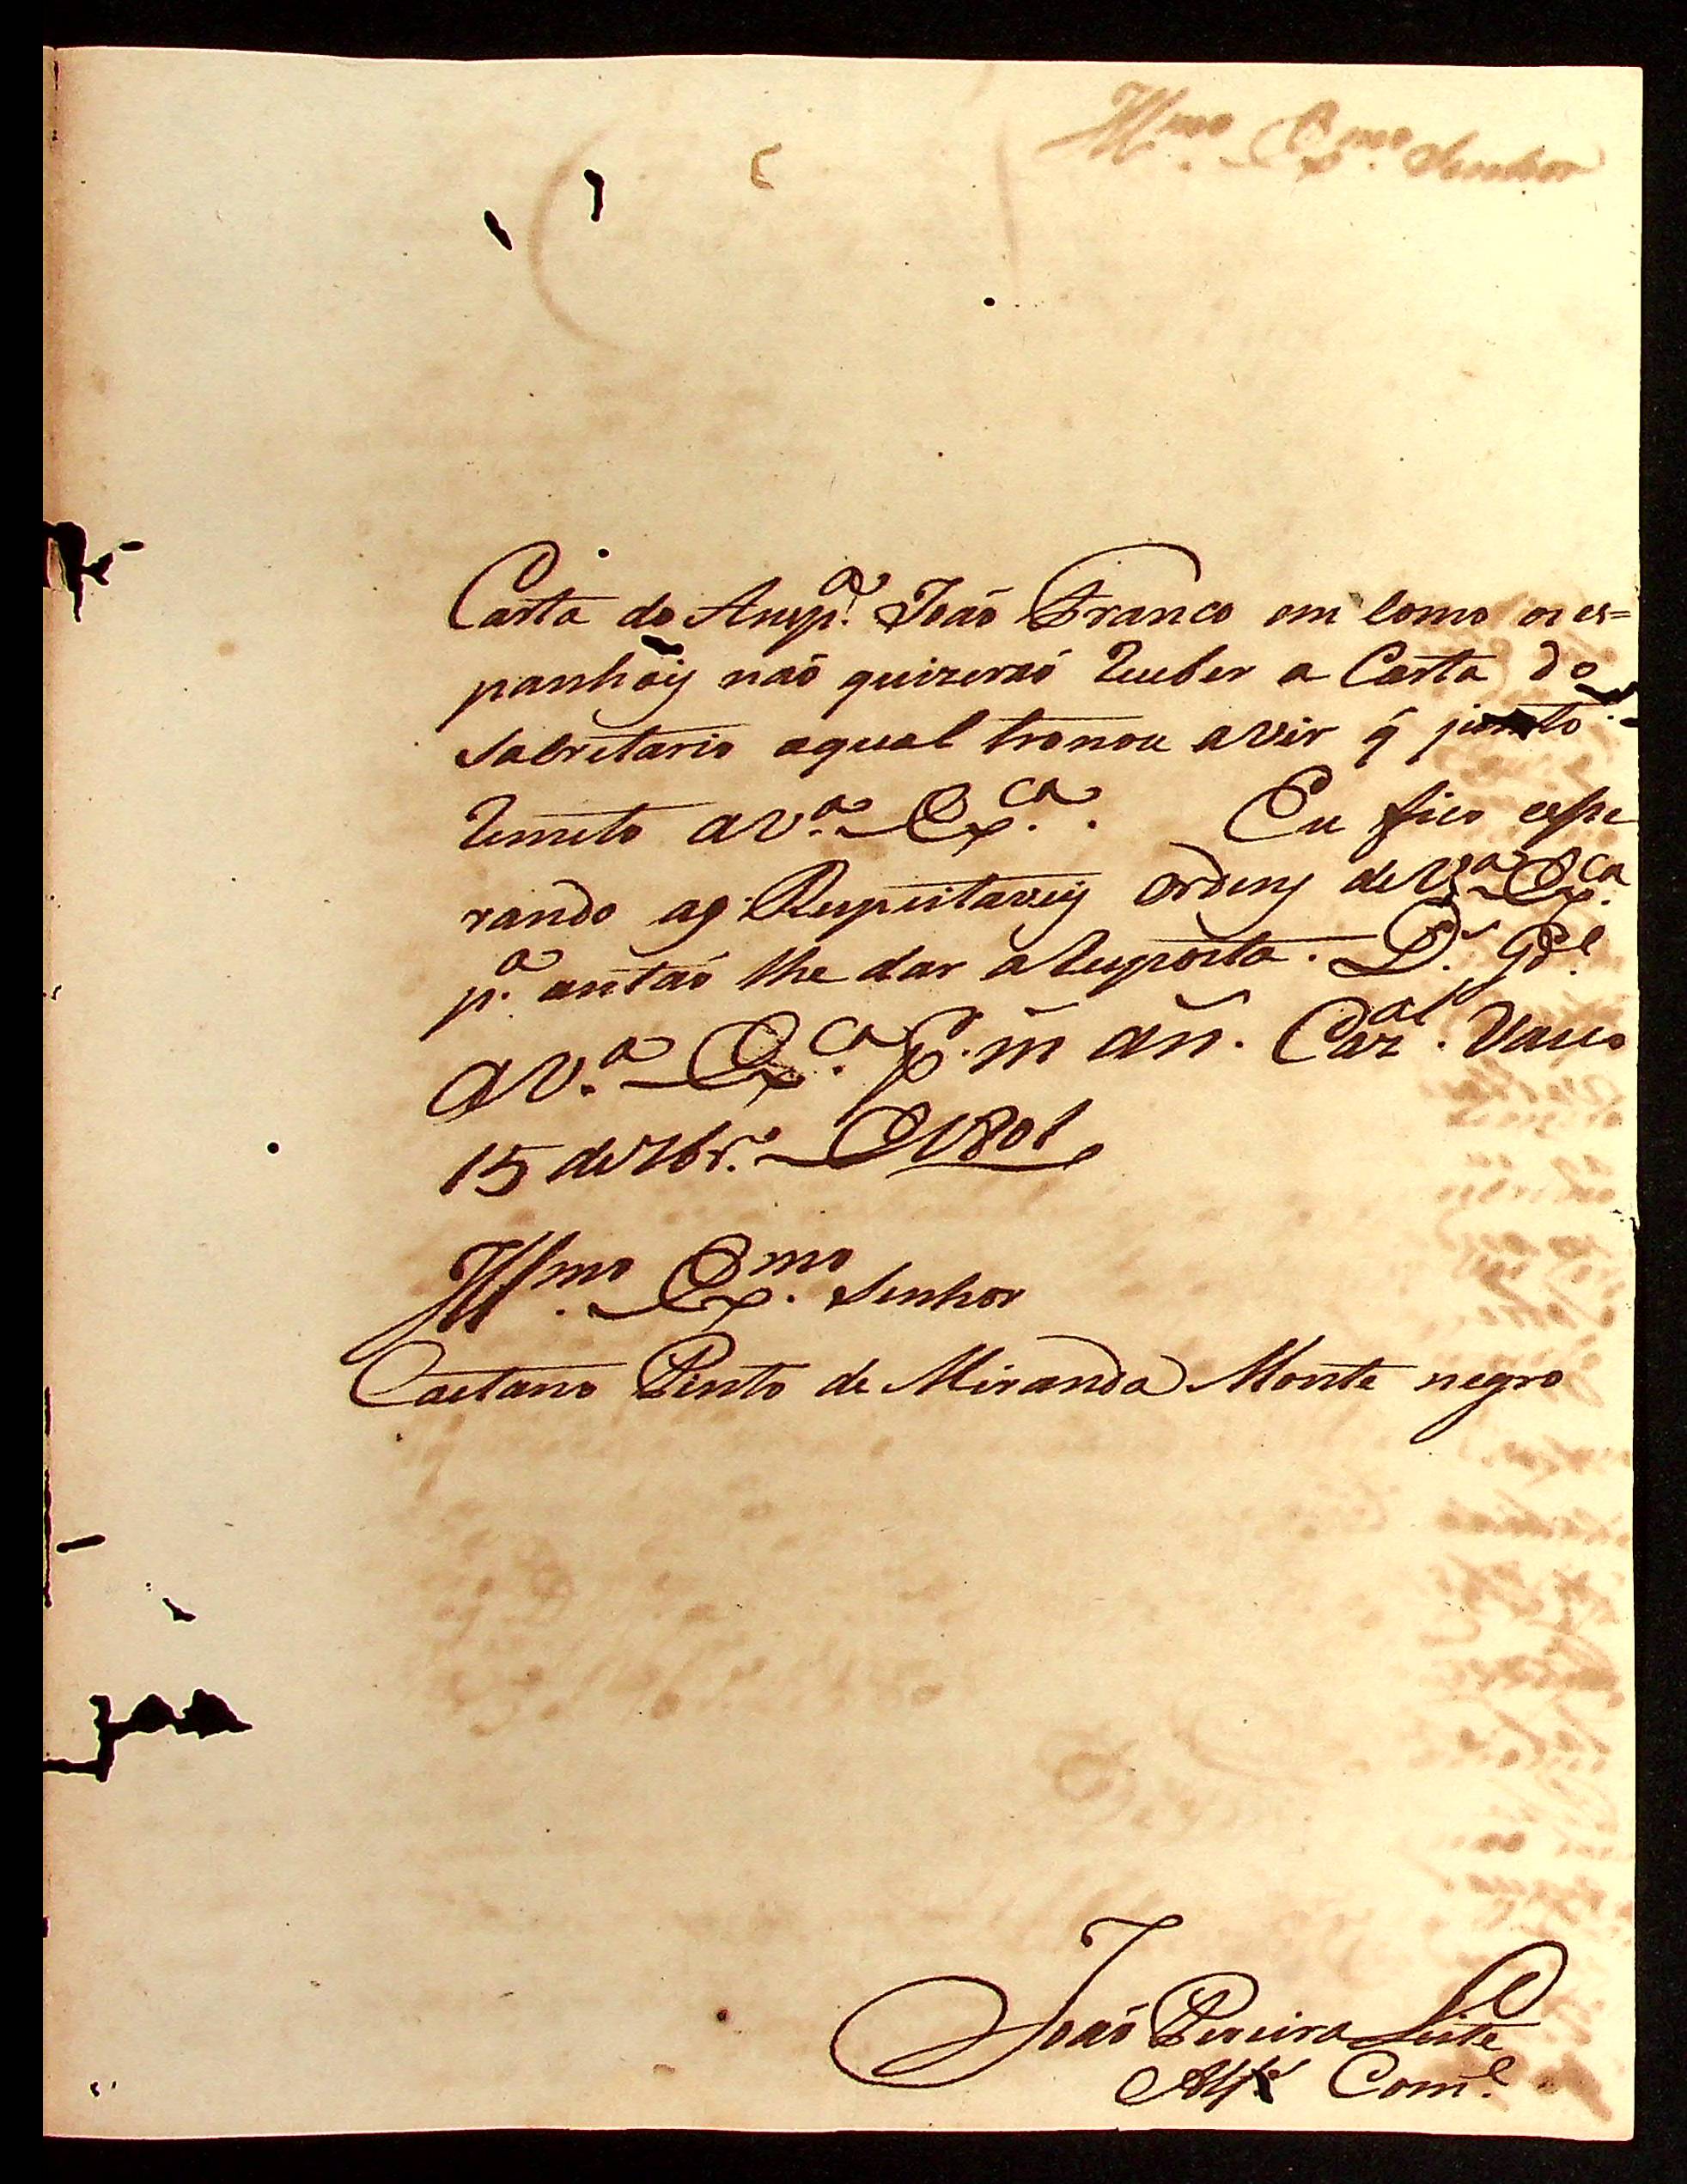 Carta do Ansp.ª João Franco em como os es=
panhois não quizerão receber a Carta do
sacretario aqual tronou avir q̃ junto
remeto aV.ª Ex.ca. Eu fico espe
rando as Respeitaveis ordens deV.ª Ex.ca
p.ª antão lhe dar a resposta. D.s g.de
aV.ª Ex.ca p.r m̃ añ. Caz.al Vasco
15 de 7br.º de 1801
Ill.mo Ex.mo Senhor
Caetano Pinto de Miranda Monte negro
João Pereira Leite
Alf.s Com.e